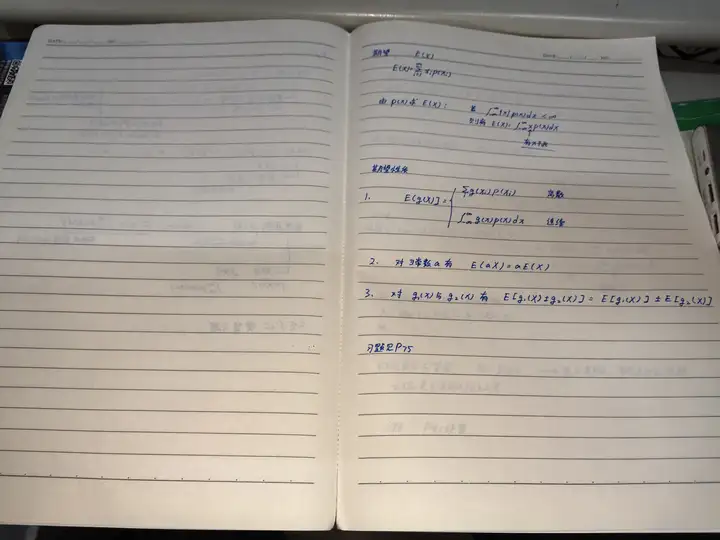 期望 E(X)
E(X)=∑_{i=1}^{∞} x_i p(x_i)
由 p(x) 求 E(X): 若 ∫_{-∞}^{∞} |x| p(x) dx < ∞
则有 E(X)= ∫_{-∞}^{∞} x p(x) dx
期望性质
1. E[g(X)] = { ∑_i g(x_i) p(x_i) 离散
∫_{-∞}^{∞} g(x) p(x) dx 连续
2. 对常数 a 有 E(aX)=aE(X)
3. 对 g₁(x) 与 g₂(x) 有 E[g₁(X)±g₂(X)] = E[g₁(X)] ± E[g₂(X)]
习题见P75